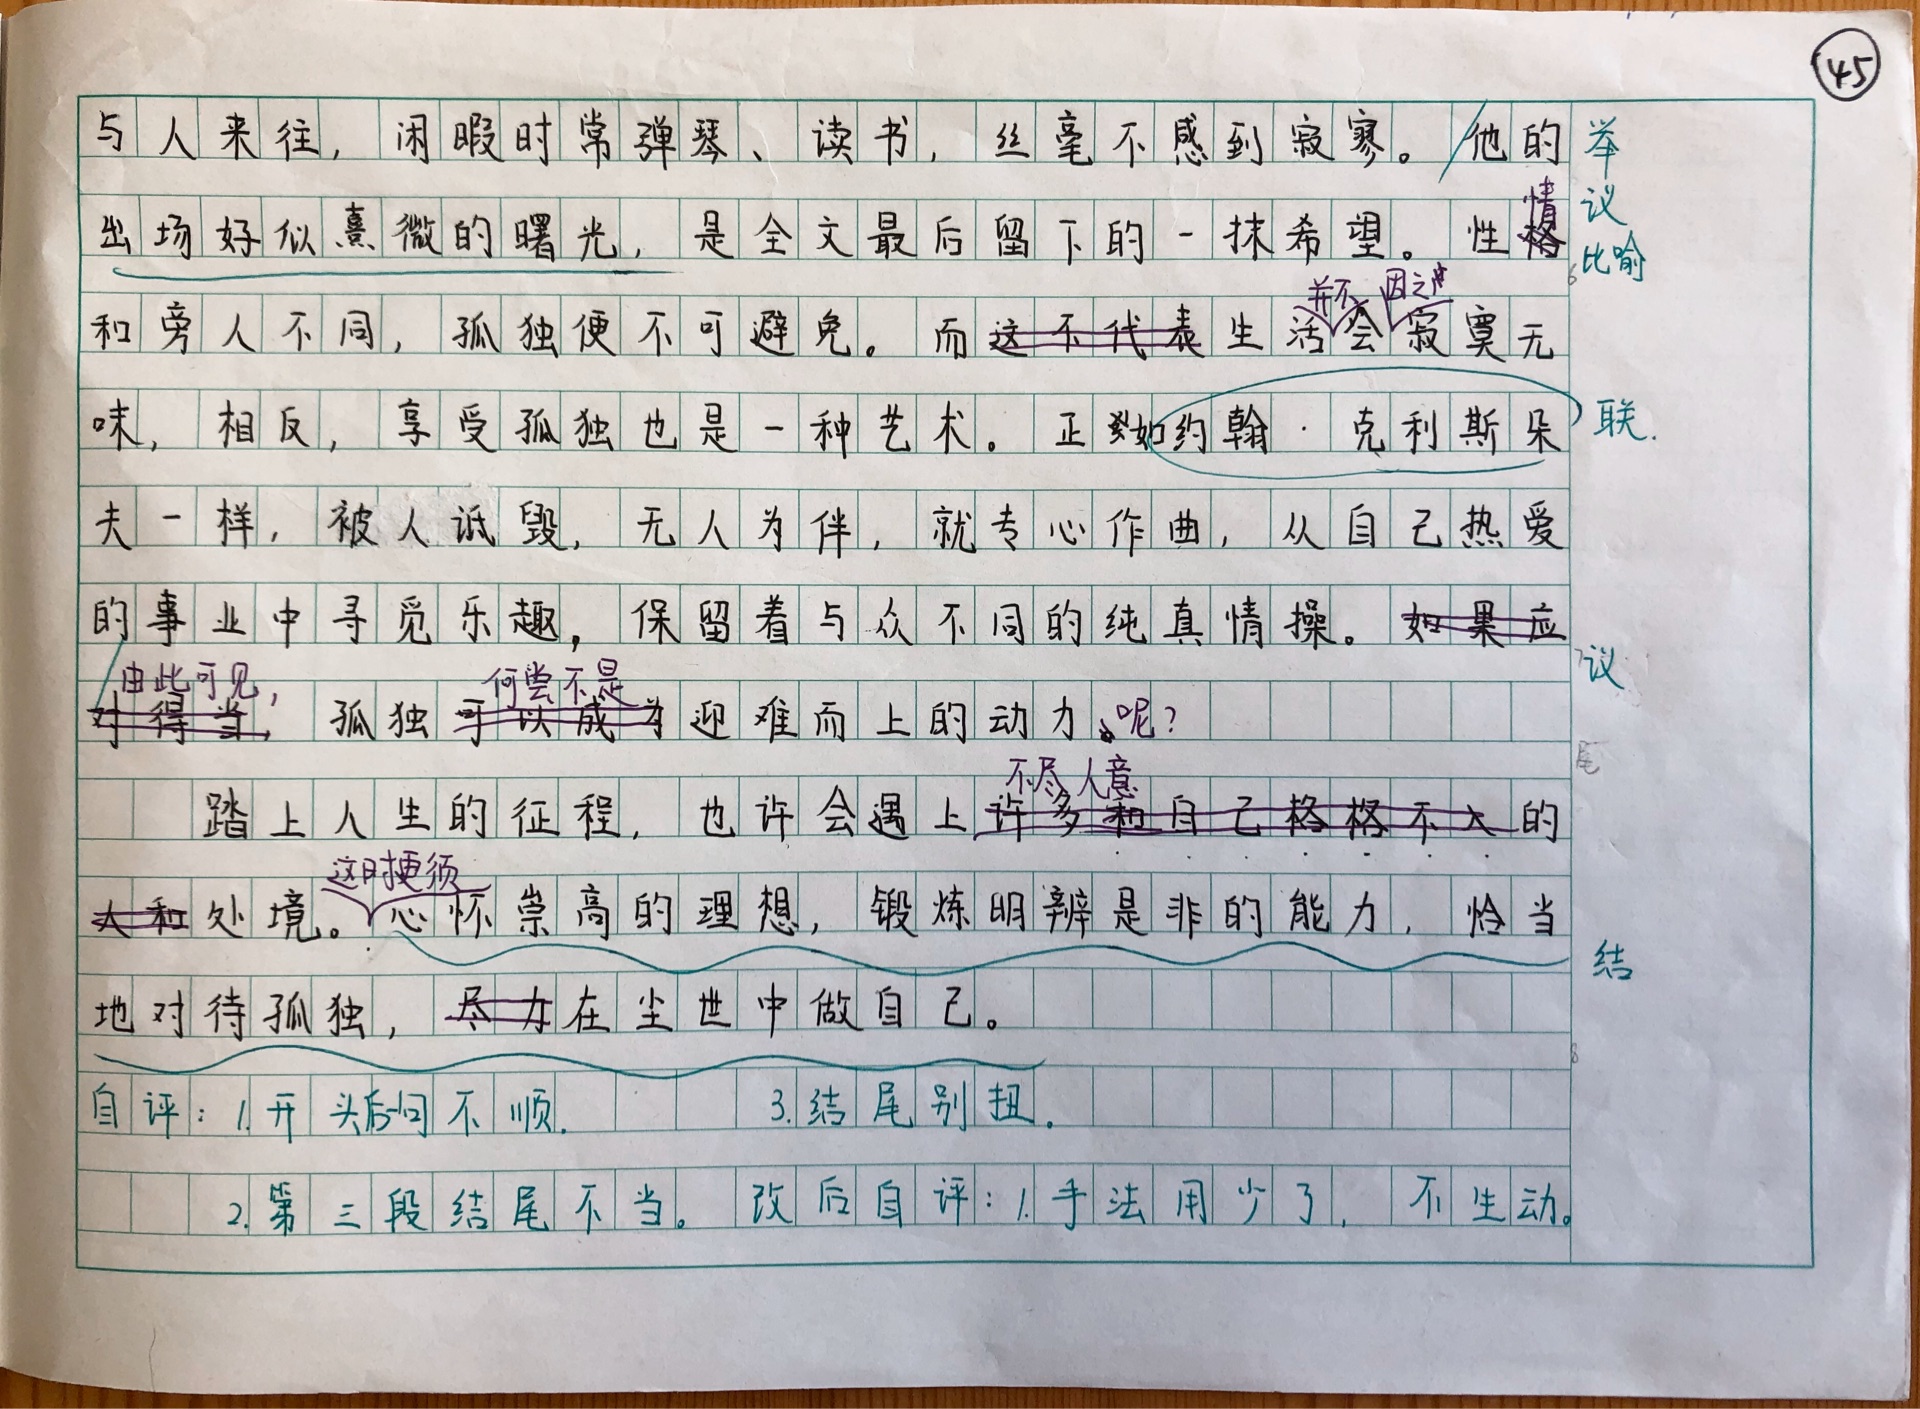 45
与人来往，闲暇时常弹琴、读书，丝毫不感到寂寥。他的 举
情 议
出场好似熹微的曙光，是全文最后留下的一抹希望。性格 比喻
并不 因之
和旁人不同，孤独便不可避免。而这不代表生活会寂寞无
味，相反，享受孤独也是一种艺术。正如约翰·克利斯朵 联.
夫一样，被人诋毁，无人为伴，就专心作曲，从自己热爱
的事业中寻觅乐趣，保留着与众不同的纯真情操。如果应
由此可见， 何尝不是 议
对得当，孤独可以成为迎难而上的动力。呢？
尾
不尽人意
踏上人生的征程，也许会遇上许多和自己格格不入的
这时更须
人和处境。心怀崇高的理想，锻炼明辨是非的能力，恰当
结
地对待孤独，尽力在尘世中做自己。
自评：1.开头后一句不顺. 3.结尾别扭.
2.第三段结尾不当。改后自评：1.手法用少了，不生动。